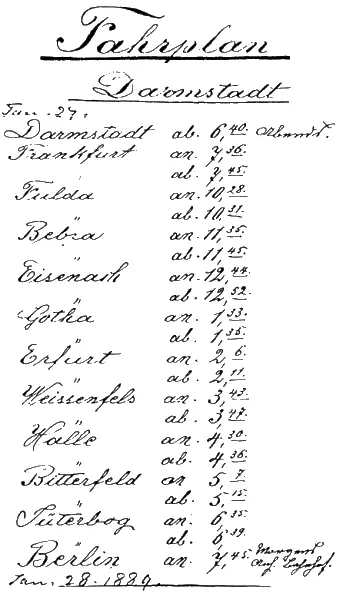 Fahrplan
Darmstadt
Jan. 27.
Darmstadt ab. 6,40. Abends.
Frankfurt an. 7,36.
ab. 7,45.
Fulda an. 10,28.
" ab. 10,31.
Bebra an. 11,35.
" ab. 11,45.
Eisenach an. 12,44.
" ab. 12,52.
Gotha an. 1,33.
" ab. 1,35.
Erfurt an. 2,6.
" ab. 2,11.
Weissenfels an. 3,43.
" ab. 3,47.
Halle an. 4,30.
" ab. 4,36.
Bitterfeld an 5,7.
" ab. 5,15.
Jüterbog an. 6,35.
" ab. 6,39.
Berlin an. 7,45. Morgens
Anh. Bahnhof.
Jan. 28. 1889.